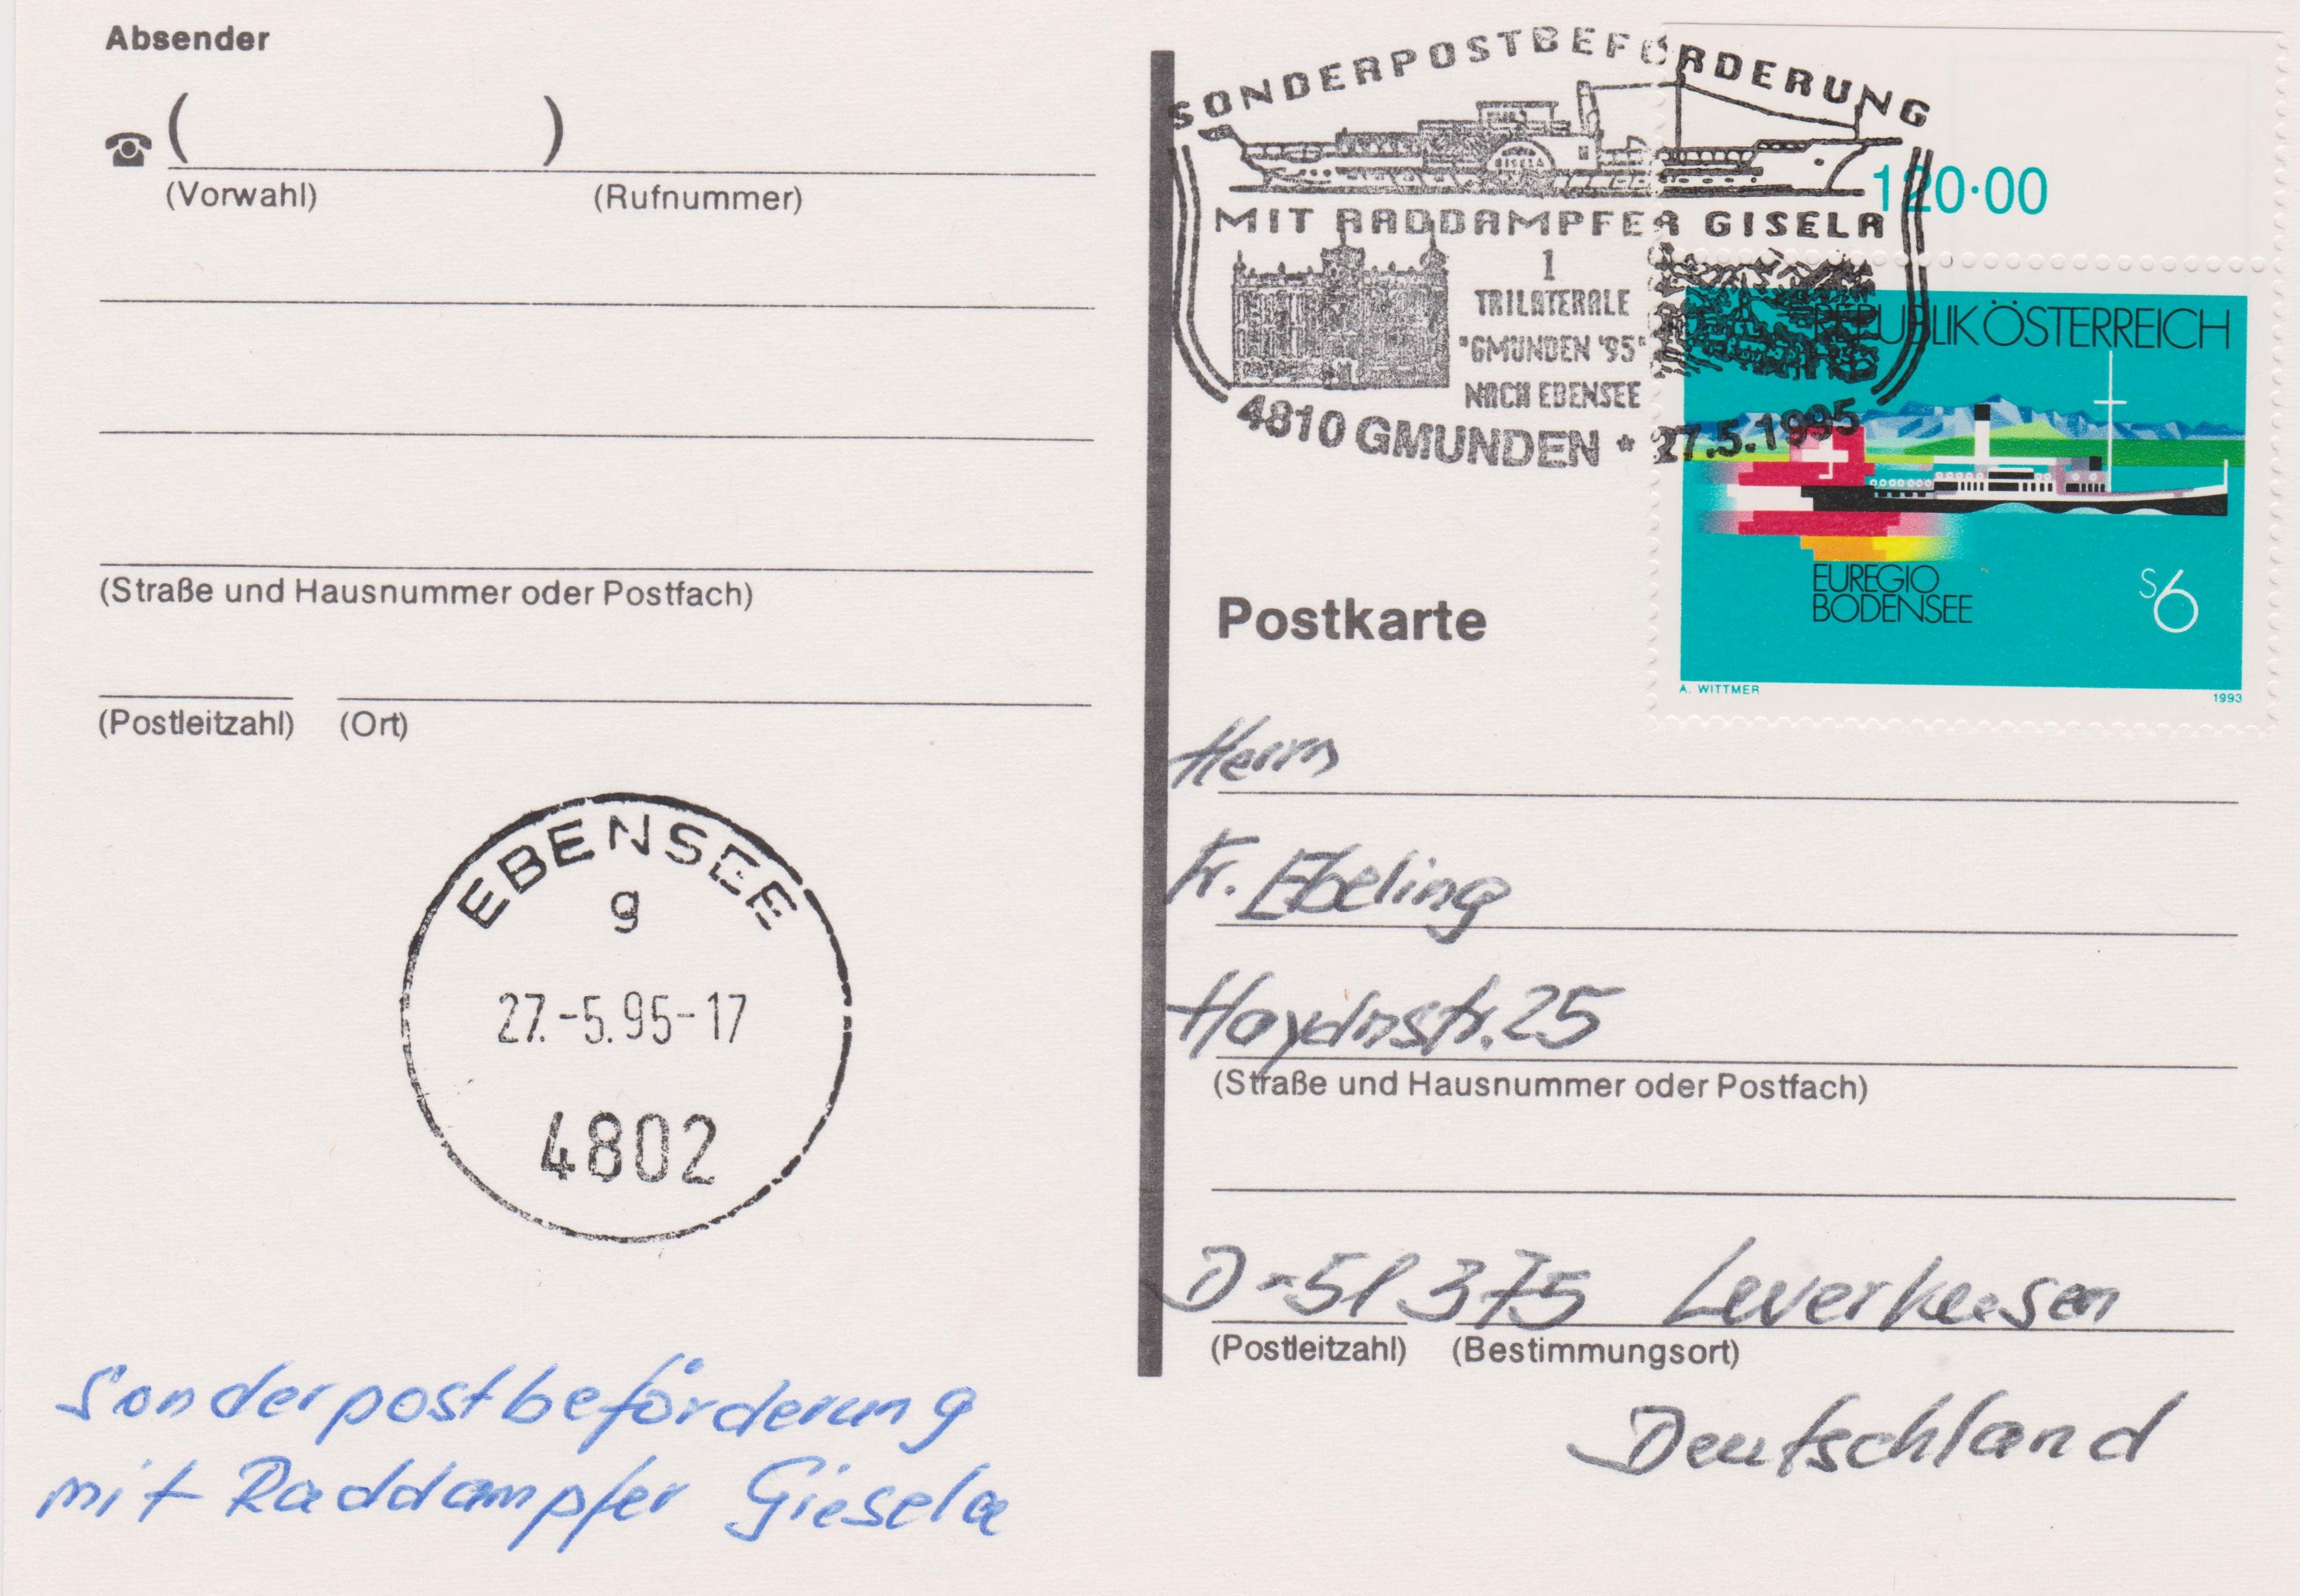 Absender
( )
(Vorwahl) (Rufnummer)
(Straße und Hausnummer oder Postfach)
(Postleitzahl) (Ort)
EBENSEE
g
27.-5.95-17
4802
Sonderpostbeförderung
mit Raddampfer Giesela
SONDERPOSTBEFÖRDERUNG
GISELA
MIT RADDAMPFER GISELA
1
TRILATERALE
"GMUNDEN '95"
NACH EBENSEE
4810 GMUNDEN * 27.5.1995
120·00
REPUBLIK ÖSTERREICH
EUREGIO
BODENSEE
S6
A. WITTMER 1993
Postkarte
Herrn
Fr. Ebeling
Haydnstr. 25
(Straße und Hausnummer oder Postfach)
D-51375 Leverkusen
(Postleitzahl) (Bestimmungsort)
Deutschland